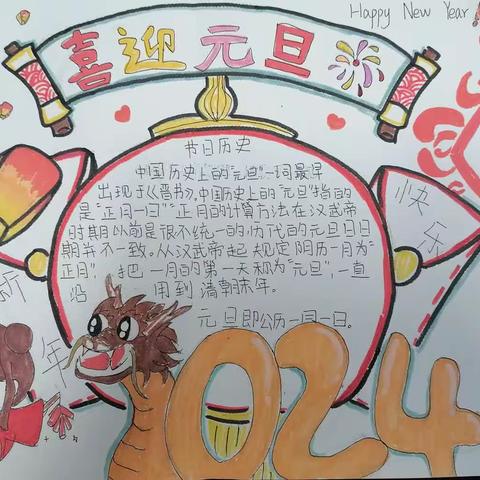 Happy New Year
喜迎元旦
节日历史
中国历史上的“元旦”一词最早
出现于《晋书》。中国历史上的“元旦”指的
是“正月一日”“正月的计算方法在汉武帝
时期以前是很不统一的,历代的元旦日日
期并不一致。从汉武帝起规定阴历一月为“
正月”,把一月的第一天称为“元旦”,一直
沿用到清朝末年。
元旦即公历一月一日。
新年
快乐
2024